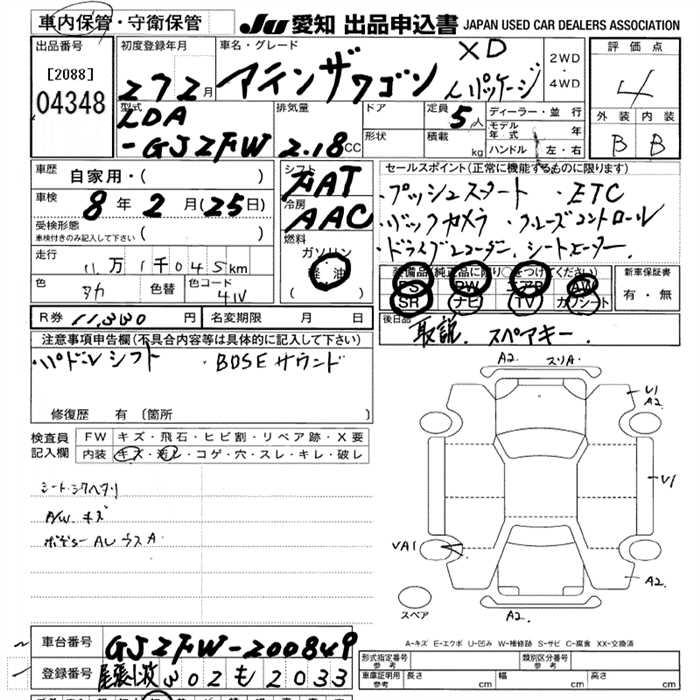 車内保管・守衛保管
JU 愛知 出品申込書 JAPAN USED CAR DEALERS ASSOCIATION
出品番号
[2088]
04348
初度登録年月
27 2月
車名・グレード
アテンザワゴン
XD
Lパッケージ
2WD
4WD
評価点
4
外装 内装
B B
型式
LDA
-GJ2FW
排気量
2.18CC
ドア
形状
定員
5人
積載
kg
ディーラー・並行
モデル年式 年
ハンドル 左・右
車歴
自家用・( )
車検
8年2月(25日)
受検形態
車検付きのみ記入して下さい ( )
走行
11万1千045km
色
アカ
色替
色コード
41V
シフト
FAT
冷房
AAC
燃料
ガソリン
軽油
( )
セールスポイント(正常に機能するものに限ります)
・プッシュスタート ・ETC
・バックカメラ ・クルーズコントロール
・ドライブレコーダー.シートヒーター.
装備品(純正品に限り○をつけてください)
PS PW エアB AW
SR ナビ TV カワシート
新車保証書
有・無
R券 11,330円
名変期限 月 日
後日品
取説. スペアキー.
注意事項申告欄(不具合内容等は具体的に記入して下さい)
・パドルシフト ・BOSEサウンド
修復歴 有 〔箇所 〕
検査員
記入欄
FW キズ・飛石・ヒビ割・リペア跡・X要
内装 キズ・汚レ・コゲ・穴・スレ・キレ・破レ
A/W キズ
A2. スリA.
V1
A2.
V1
VA1
A2.
A2.
スペア
A-キズ E-エクボ U-凹み W-補修跡 S-サビ C-腐食 XX-交換済
車台番号
GJ2FW-200849
登録番号
尾張小牧 302 も 2033
形式指定番号
参考
類別区分番号
参考
車庫証明用
参考
長さ cm
幅 cm
高さ cm